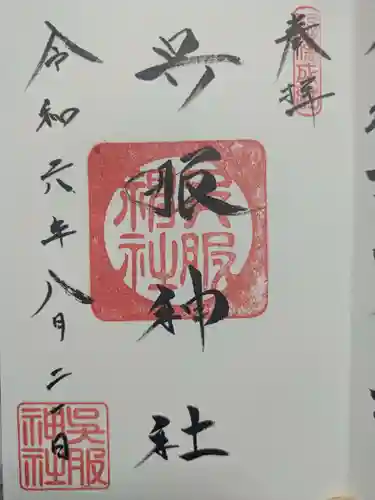 奉拝
呉服神社
令和六年八月二日
呉服神社
呉服神社